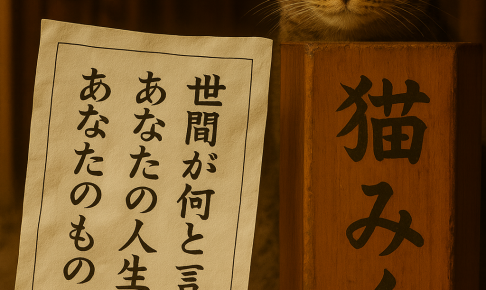 猫み
世間が何と言
あなたの人生
あなたのもの